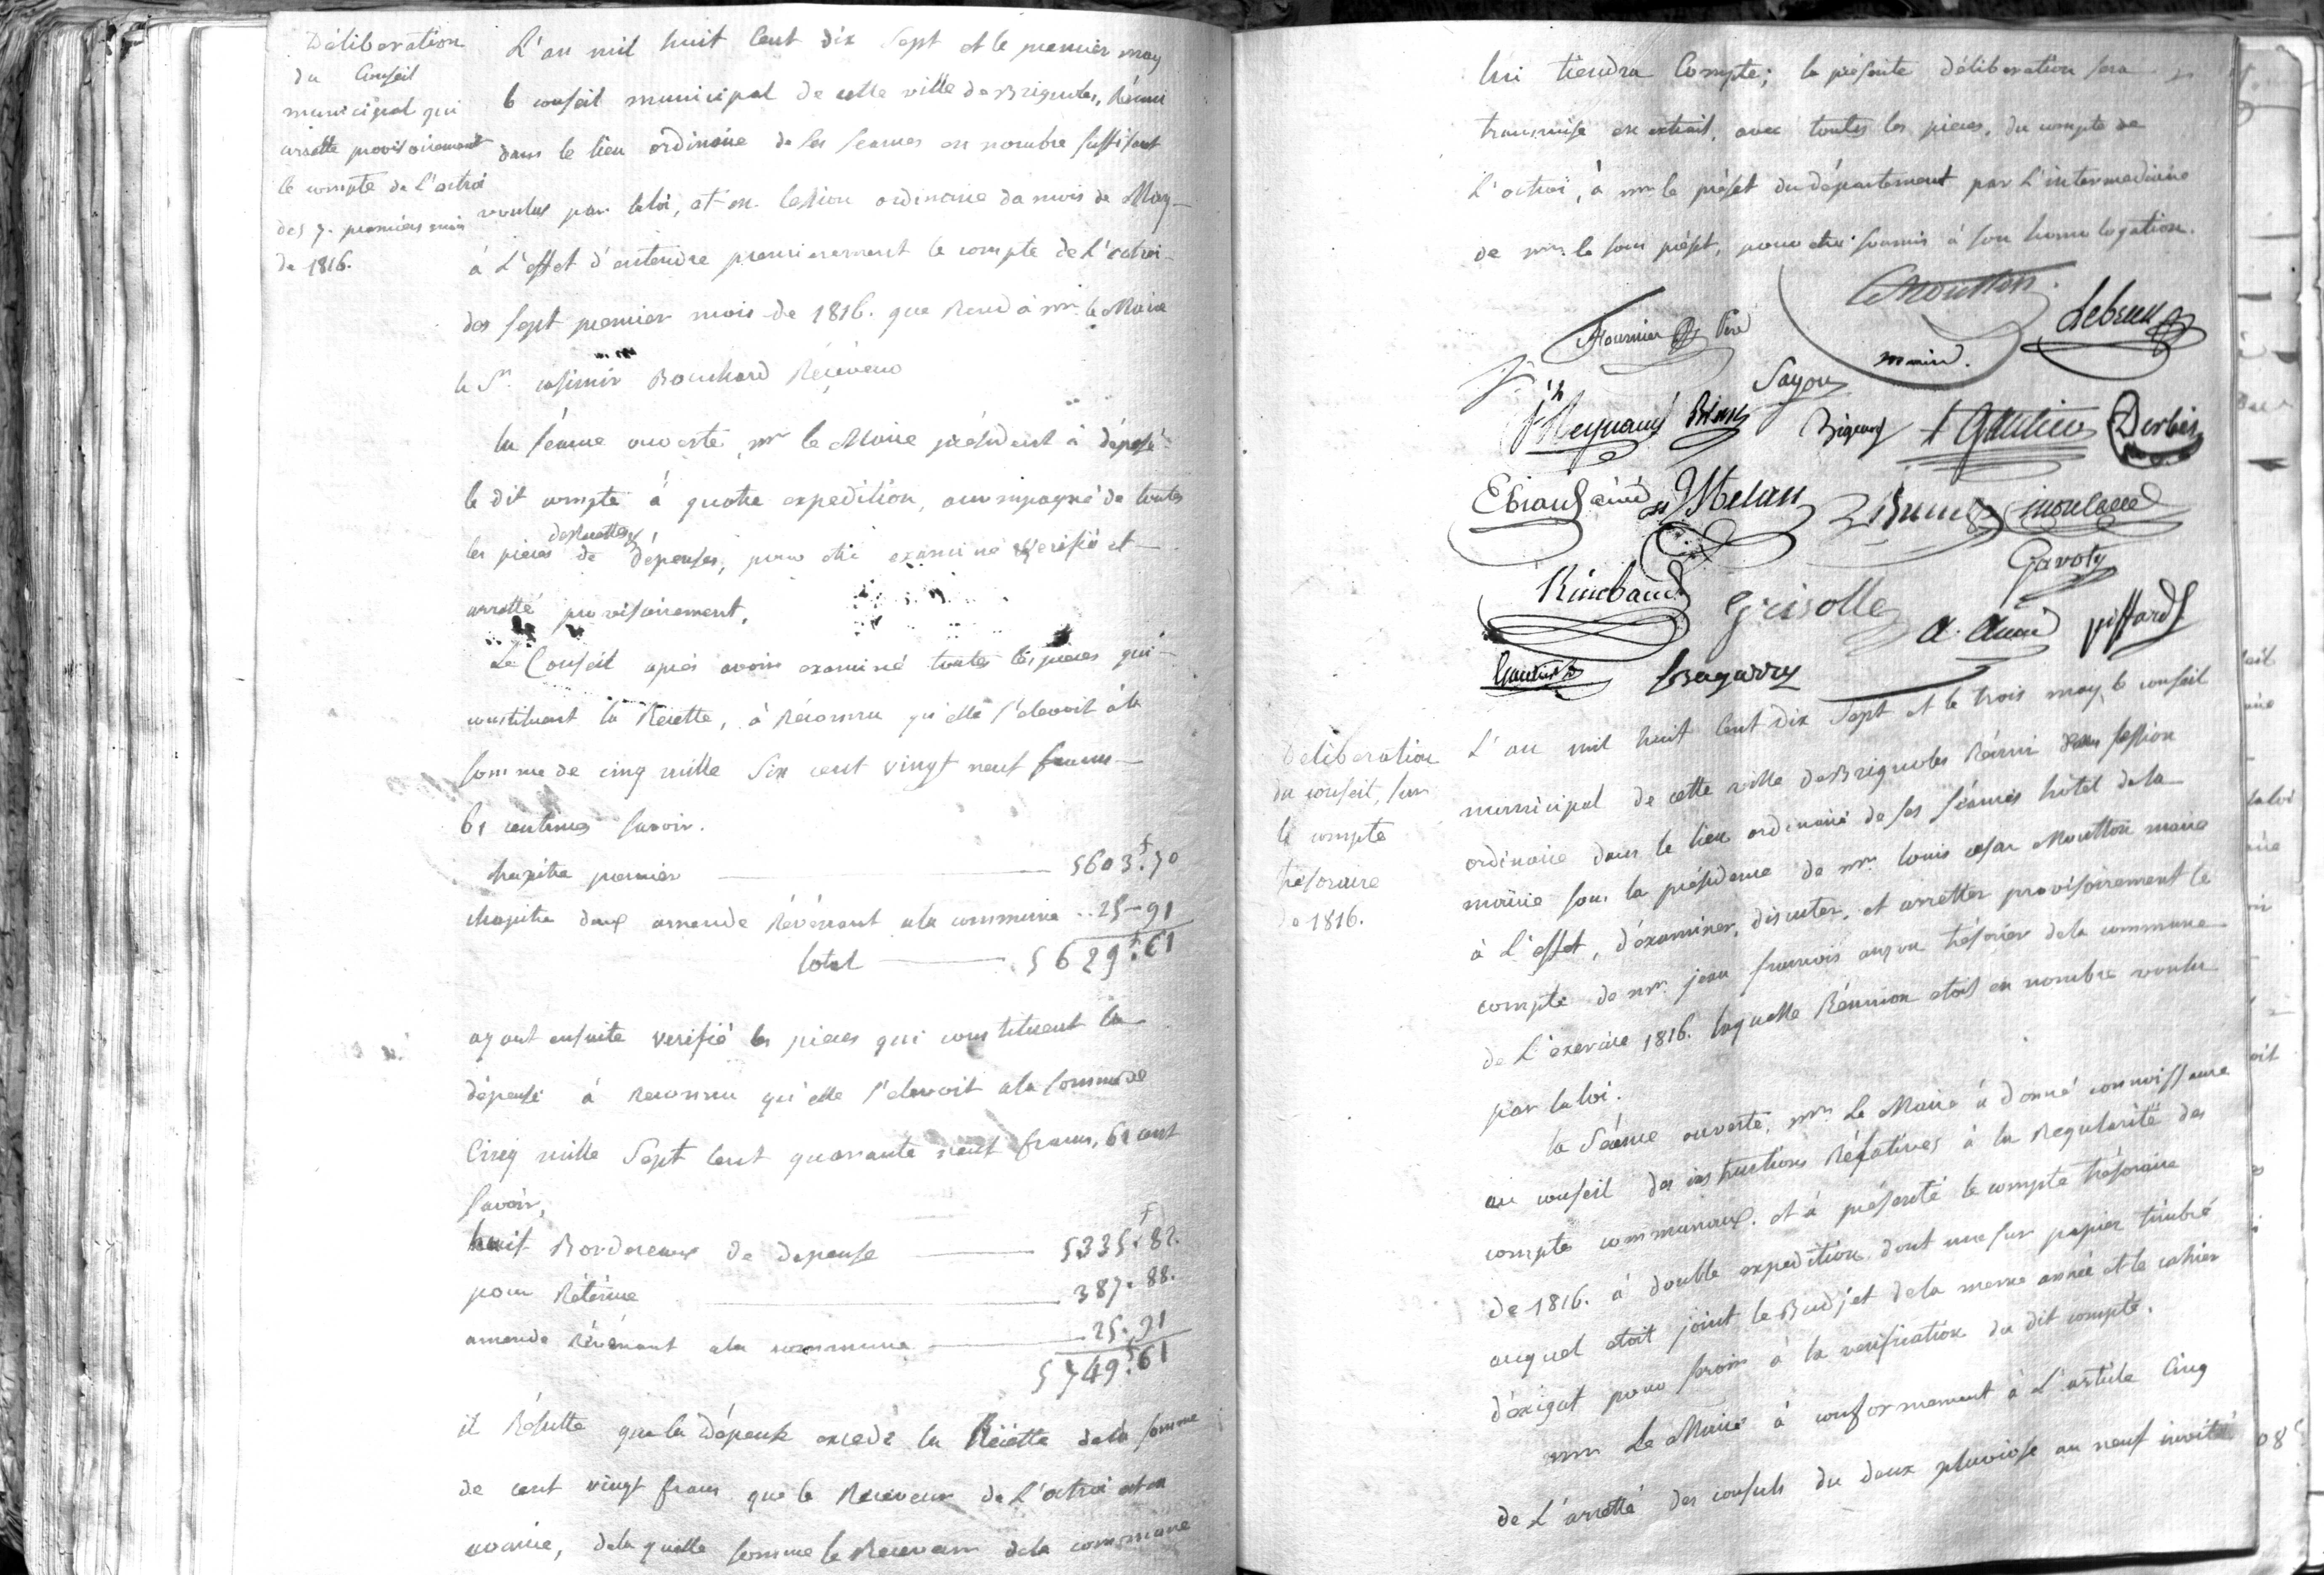 Déliberation
du Conseil
municipal qui
arrette provisoirement
le compte de L'octroi
des 7. premiers mois
de 1816.
L'an mil huit Cent dix Sept et le premier may
le conseil municipal de cette ville de Brignoles, Réuni
dans le lieu ordinaire de ses séances en nombre suffisant
voulus par la loi, et en session ordinaire du mois de May
à L'effet d'entendre premierement le compte de L'octroi
des sept premier mois de 1816. que Rend à mr. le Maire
le Sr. casimir Bouchard Réçeveur
la séance ouverte, mr le Maire président à déposé
le dit compte à quatre expedition, accompagné de toutes
les pieces de Recettes & dépenses, pour etre examiné verifié et
arretté provisoirement.
Le Conseil après avoir examiné toutes les pieces qui
constituent la Recette, à Réconnu qu'elle s'elevoit à la
somme de cinq mille Six cent vingt neuf francs
61 centimes savoir.
chapitre premier 5603f.70
chapitre deux amende Révénant a la commune .. 25-91
total 5629f.61
ayant ensuite verifié les pieces qui constituent la
dépense à Reconnu qu'elle s'elevoit a la somme de
Cinq mille Sept Cent quarante neuf francs, 61 cent
savoir,
huit Bordereaux de depense 5335f.82.
pour Réténue 387.88.
amende Révénant a la commune 25.91
5749f.61
il Résulte que la Dépense excede la Réçette de la somme
de cent vingt francs que le Receveur de L'octroi est en
avance, de la quelle somme le Receveur de la commune
lui tiendra Compte; la présente déliberation sera
transmise en extrait, avec toutes les pieces, du compte de
L'octroi, à mr le préfet du département par L'intermediaire
de mr. le sous préfet, pour etre soumis à son homologation.
Moutton
maire.
Fournier Père
Lebrun
Sayou
Reynaud
Gautier
Derbès
aîné
Melan
Brun
Rimbaud
Grisolle
Gavoty
piffard
Fragarry
Deliberation
du conseil, sur
le compte
trésoraire
de 1816.
L'an mil huit Cent Dix Sept et le trois may, le conseil
municipal de cette ville de Brignoles Réuni en session
ordinaire dans le lieu ordinaire de ses séances hôtel de la
mairie sous la présidence de mr. louis cesar Moutton maire
à L'effet, d'éxaminer, discuter, et arretter provisoirement le
compte de mr. jean francois trésorier de la commune
de L'exercice 1816. laquelle Réunion etoit en nombre voulu
par la loi.
la Séance ouverte, mr. Le Maire à donné connoissance
au conseil des instructions Rélatives à la Regularité des
comptes communaux. et à présenté le compte trésoraire
de 1816. à double expedition dont une sur papier timbré
auquel etoit joint le Budjet de la meme année et le cahier
d'exigat pour servir à la verification du dit compte.
mr Le Maire à conformement à L'article Cinq
de L'arretté des consuls du deux pluviose an neuf invité